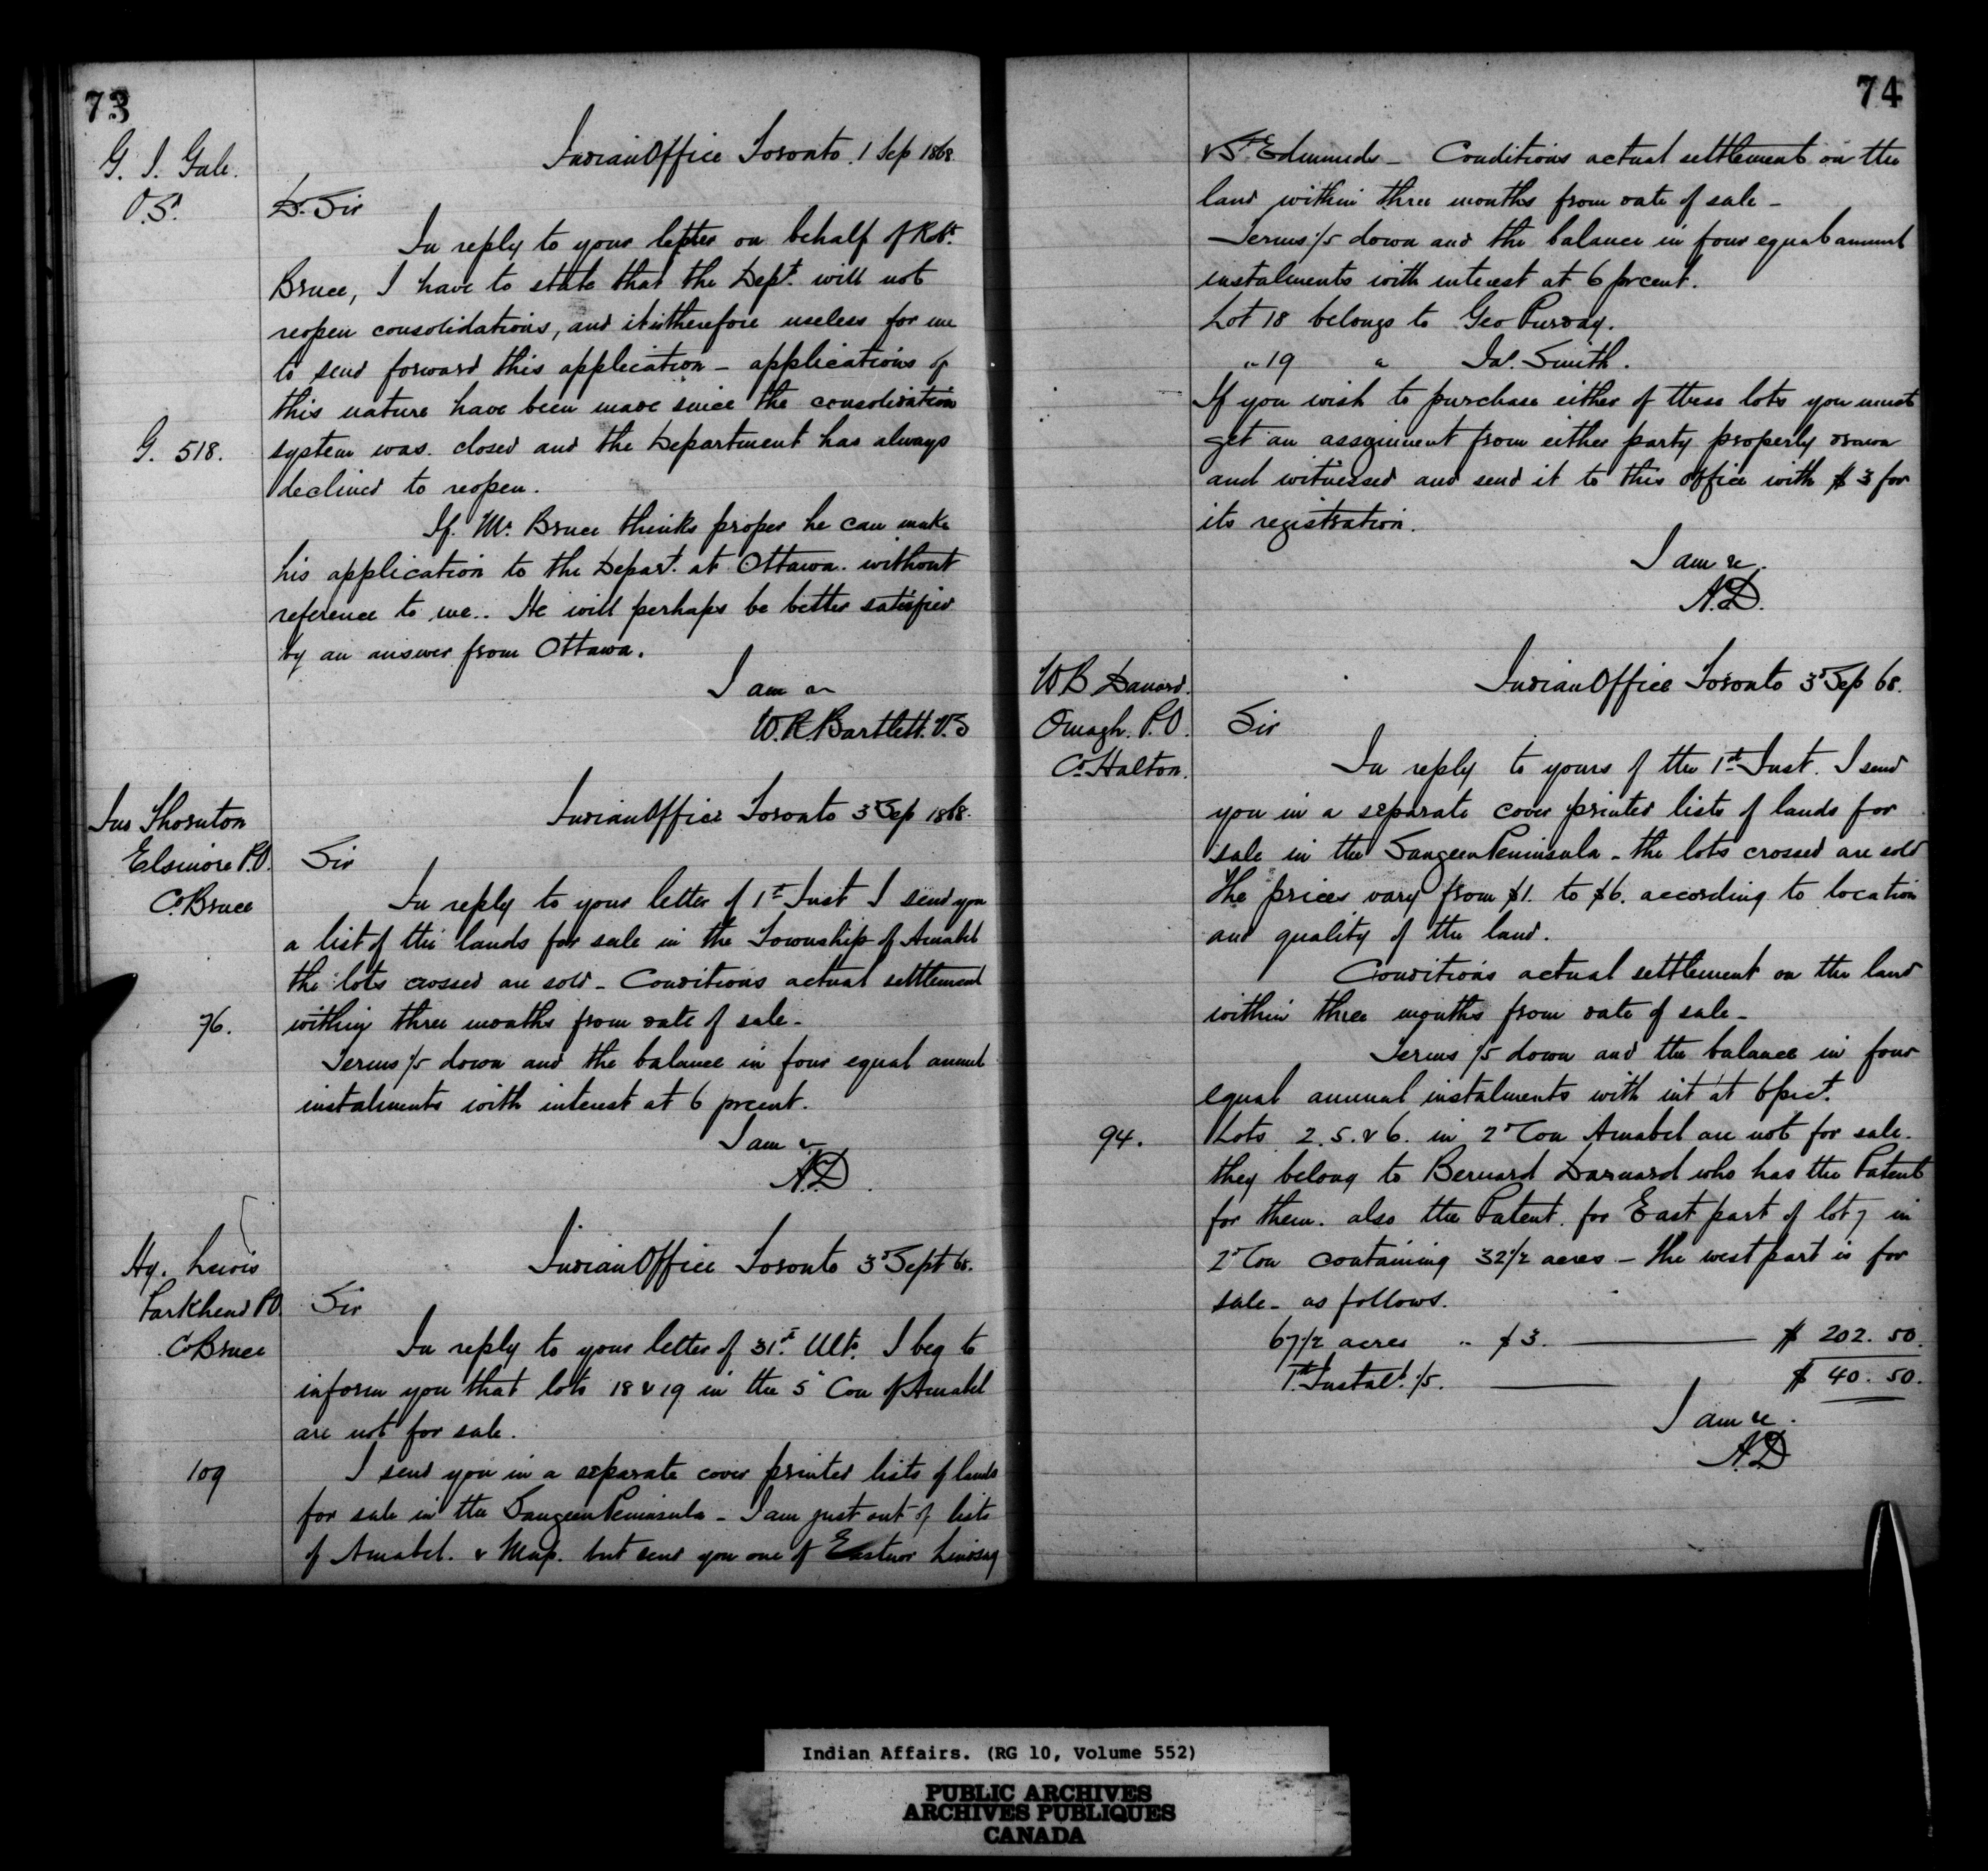 73
G. I. Gale.
O.Sd.
Indian Office Toronto. 1 Sep 1868
Dr. Sir
In reply to your letter on behalf of Robt.
Bruce, I have to state that the Dept. will not
reopen consolidations, and it is therefore useless for me
to send forward this application - applications of
this nature have been made since the consolidation
G. 518.
system was closed and the Department has always
declined to reopen.
If Mr. Bruce thinks proper he can make
his application to the Depart. at Ottawa. without
reference to me.. He will perhaps be better satisfied
by an answer from Ottawa.
I am &
W.R. Bartlett. V.S
Jas Thornton
Elsinore P.O.
Co. Bruce
Indian Office Toronto 3d Sep 1868.
Sir
In reply to your letter of 1st Inst I send you
a list of the lands for sale in the Township of Amabel
the lots crossed are sold - Conditions actual settlement
76.
within three months from date of sale -
Terms 1/5 down and the balance in four equal annual
instalments with interest at 6 prcent.
I am &
A.D.
Hy. Lewis
Parkhead PO.
Co Bruce
Indian Office Toronto 3d Sept 68.
Sir
In reply to your letter of 31st. Ulto. I beg to
inform you that lots 18 & 19 in the 5" Con of Amabel
are not for sale.
109
I send you in a separate cover printed lists of lands
for sale in the Saugeen Peninsula - I am just out of lists
of Amabel. & Map. but send you one of Eastnor Lindsay
74
& St. Edmunds - Conditions actual settlement on the
land within three months from date of sale -
Terms 1/5 down and the balance in four equal annual
instalments with interest at 6 prcent.
Lot 18 belongs to Geo Purday.
" 19 " Jas. Smith.
If you wish to purchase either of these lots you must
get an assignment from either party properly drawn
and witnessed and send it to this office with $3 for
its registration.
I am &c.
A.D.
W B
Omagh. P.O.
Co. Halton.
Indian Office Toronto 3d Sep 68.
Sir
In reply to yours of the 1st Inst. I send
you in a separate cover printed lists of lands for
sale in the Saugeen Peninsula - the lots crossed are sold
The prices vary from $1. to $6. according to location
and quality of the land.
Conditions actual settlement on the land
within three months from date of sale -
Terms 1/5 down and the balance in four
equal annual instalments with int at 6 prct.
94.
Lots 2. 5. & 6. in 2d Con Amabel are not for sale.
they belong to Bernard who has the Patent
for them. also the Patent. for East part of lot 7 in
2d Con containing 32 1/2 acres - the west part is for
sale - as follows.
67 1/2 acres " $3. $ 202. 50.
1st. Instalt. 1/5. $ 40. 50.
I am &c.
A.D
Indian Affairs. (RG 10, Volume 552)
PUBLIC ARCHIVES
ARCHIVES PUBLIQUES
CANADA